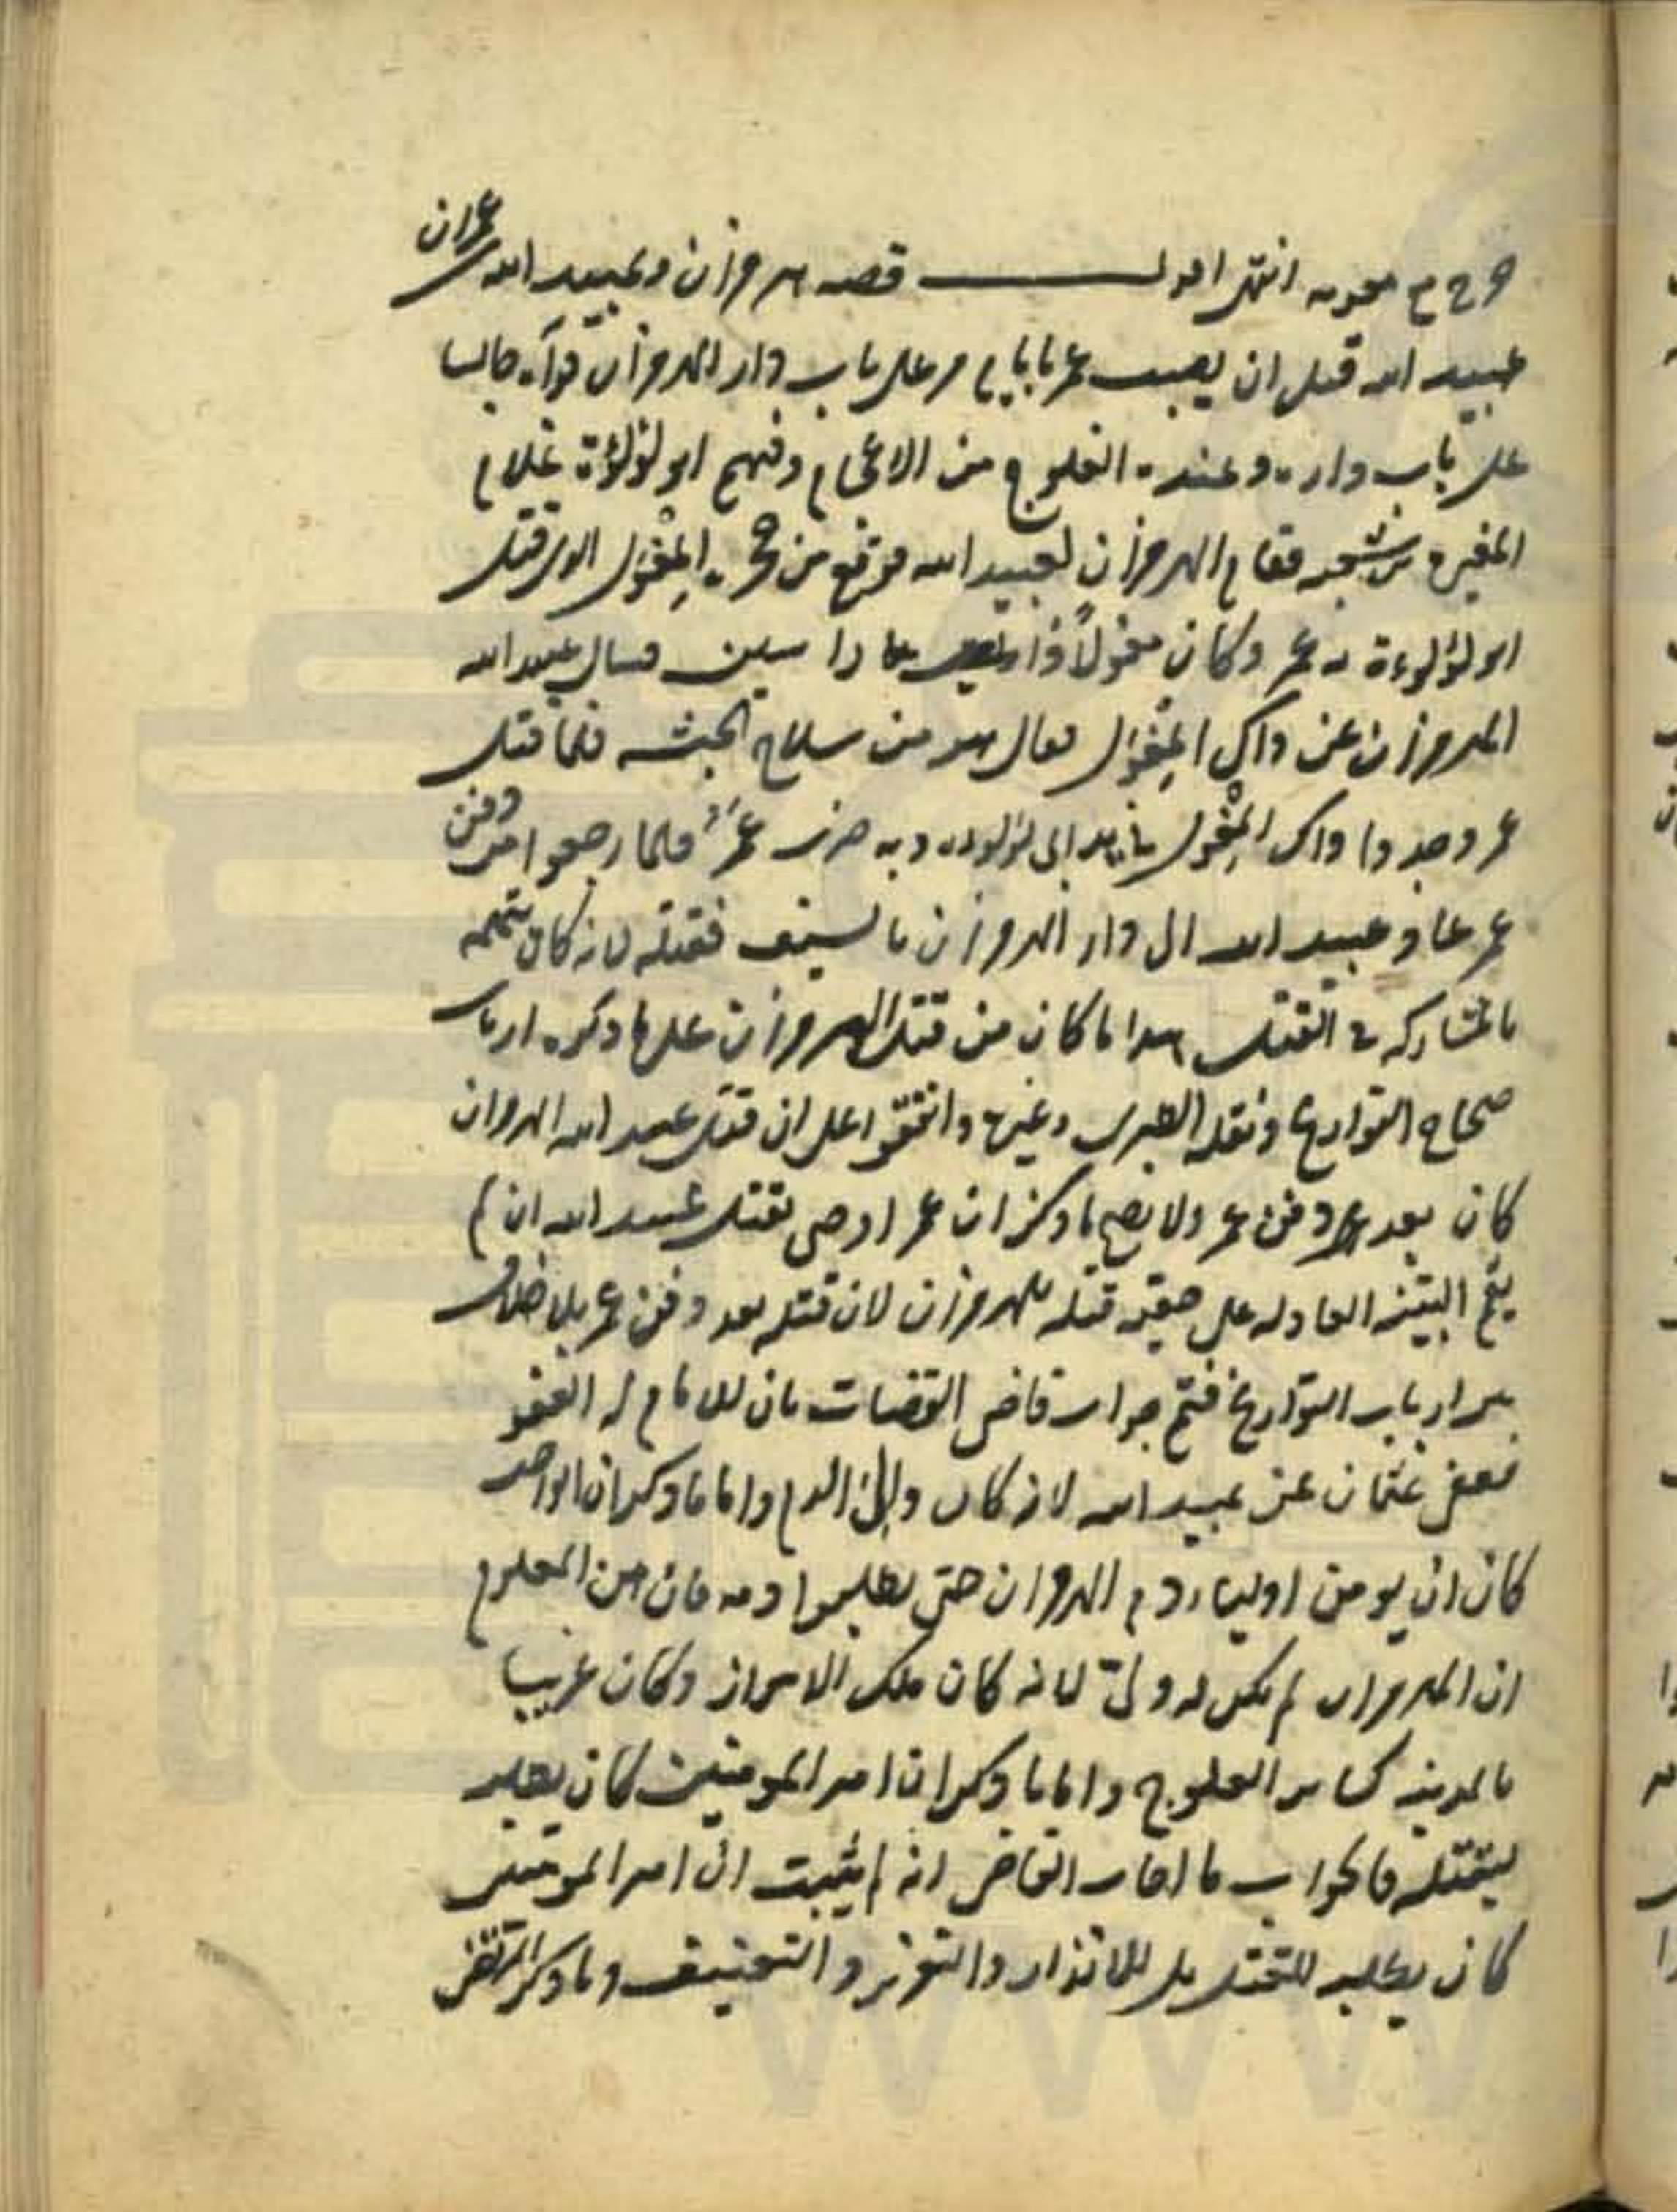 خرج مع معويه انتهى اقول قصه هرمزان وعبيد الله بن عمر ان
عبيد الله قبل ان يصيب عمر بايام مر على باب دار الهرمزان فرآه جالسا
على باب داره وعنده العلوج من الاعجام وفيهم ابو لؤلؤة غلام
المغيره بن شعبه فقام الهرمزان لعبيد الله فوقع من حجره المِغْوَل الذى قتل
ابو لؤلوءة به عمر وكان مغولاً ذا راسين فسال عبيد الله
الهرمزان عن ذاك المِغْوَل فقال هو من سلاح الحبشه فلما قتل
عمر وجدوا ذاك المِغْوَل بيد ابى لؤلوءه وبه ضرب عمر فلما رجعوا من دفن
عمر عاد عبيد الله الى دار الهرمزان بالسيف فقتله لانه كان يتهمه
بالمشاركه فى القتل هذا ما كان من قتل الهرمزان على ما ذكره ارباب
صحاح التواريخ ونقله الطبرى وغيره واتفقوا على ان قتل عبيد الله الهرمزان
كان بعد دفن عمر ولا يصح ما ذكر ان عمر اوصى بقتل عبيد الله ان لم
يقم البينه العادله على قتله للهرمزان لان قتله بعد دفن عمر بلا خلاف
بين ارباب التواريخ فتم جواب قاضى القضات بان للامام له العفو
فعفى عثمان عن عبيد الله لانه كان ولىّ الدم واما ما ذكر ان الواجب
كان ان يومن اولياء دم الهرمزان حتى يطلبوا دمه فان من المعلوم
ان الهرمزان لم يكن له ولىّ لانه كان ملك الاهواز وكان غريبا
بالمدينه كساير العلوج واما ما ذكر ان امير المومنين كان يطلبه
ليقتله فالجواب ما اجاب القاضى انه لم يثبت ان امير المومنين
كان يطلبه للقتل بل للانذار والتعزير و التعنيف وما ذكر المرتضى